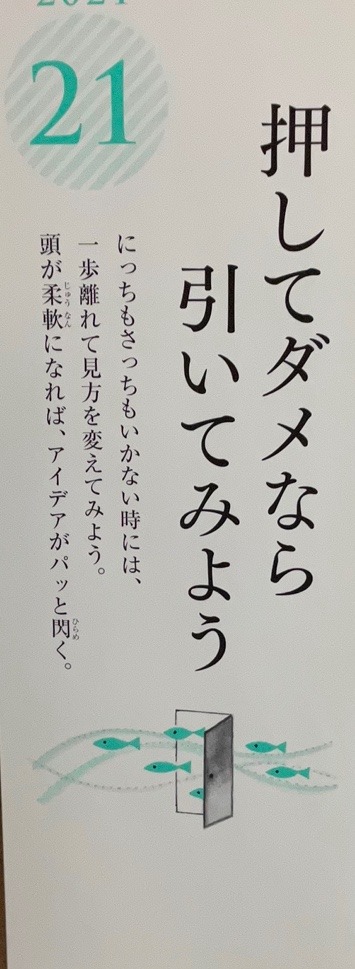 21
押してダメなら
引いてみよう
にっちもさっちもいかない時には、
一歩離れて見方を変えてみよう。
頭が柔軟になれば、アイデアがパッと閃く。
じゅうなん
ひらめ